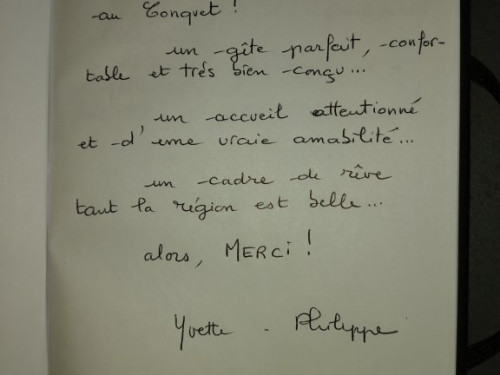 -au Conquet !
un -gîte parfait, -confor-
table et trés bien -conçu...
un -accueil attentionné
et -d'une vraie amabilité...
un -cadre -de rêve
tant la région est belle...
alors, MERCi !
Yvette - Philippe